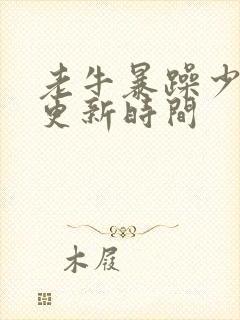 老牛暴躁少
更新時間
木屐